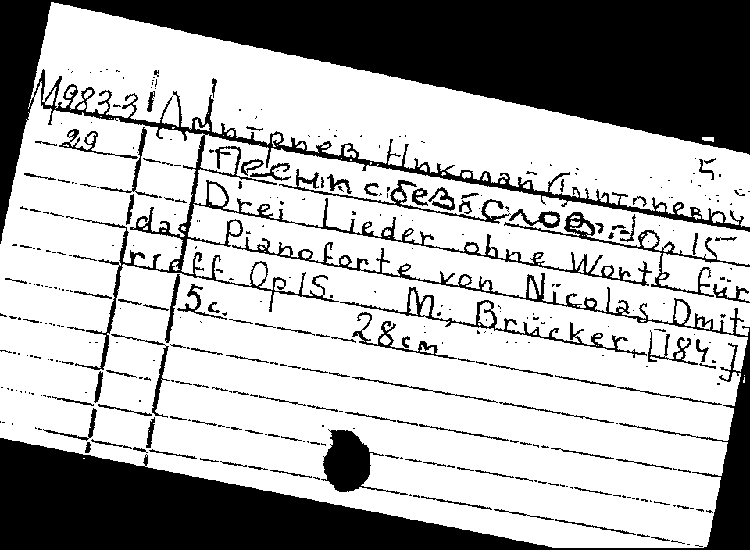 М983-3 Дмитриев, Николай Дмитриевич 5.
29 Песни без слов Ор. 15
Drei Lieder ohne Worte für
das Pianoforte von Nicolas Dmit-
rieff. Op 15. M., Brücker, [184.]
5 с. 28 см